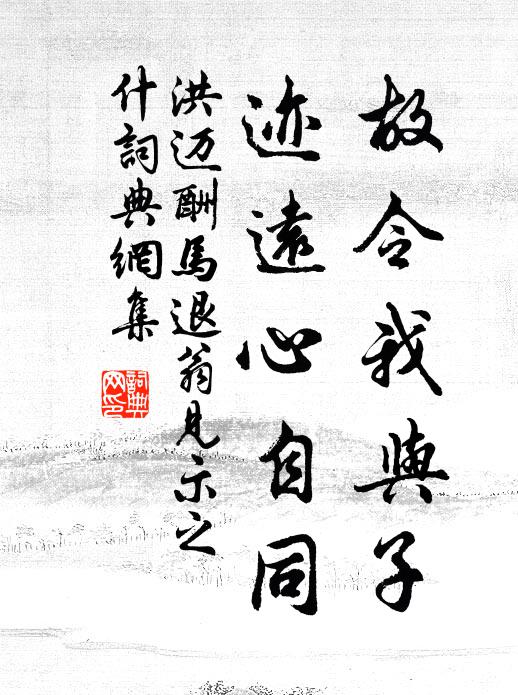 故令我與子
迹遠心自同
洪迈酬馬退翁見示之
什詞典網集
詞典
网印